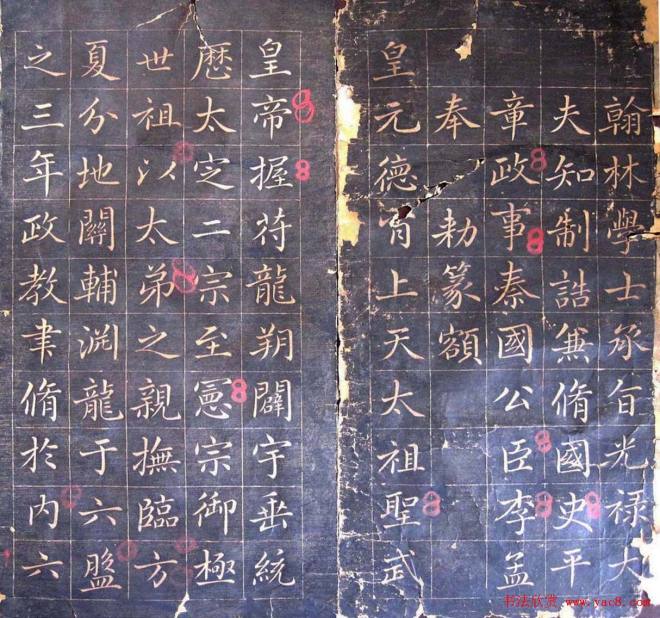 翰林學士承旨光祿大
夫知制誥兼脩國史平
章政事秦國公臣李孟
奉 勅篆額
皇元德肖上天太祖聖武
皇帝握苻龍朔闢宇垂統
歷太定二宗至憲宗御極
世祖以太弟之親撫臨方
夏分地關輔渊龍于六盤
之三年政教聿脩於内六
书法欣赏 www.yac8.com